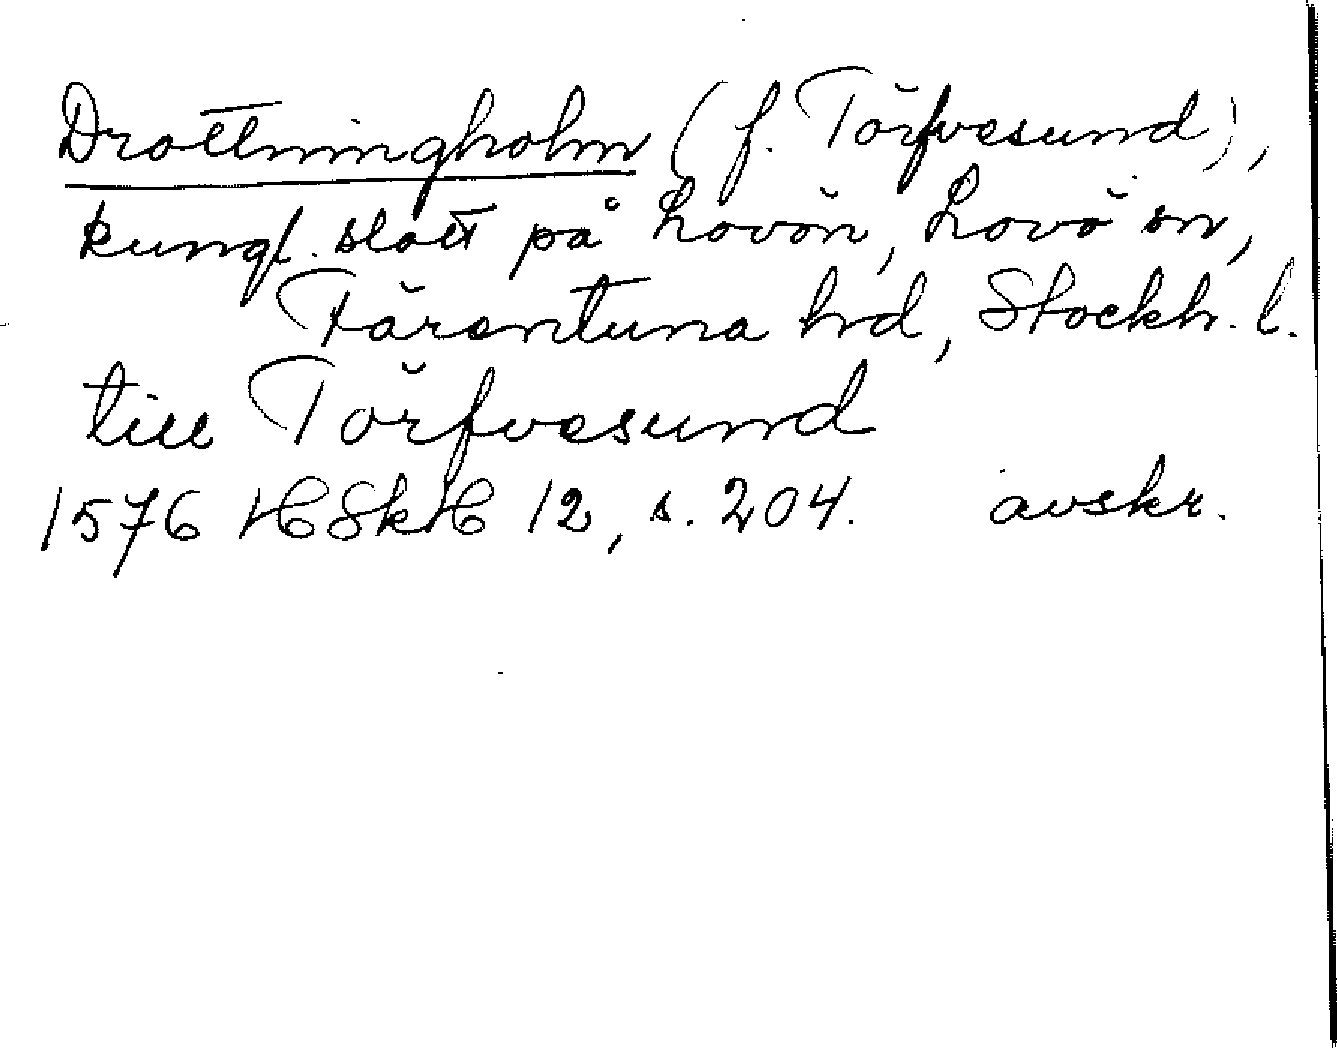 Drottningholm (f. Törfvesund),
kungl. slott på Lovön, Lovö sn,
Färentuna hd, Stockh. l.
till Törfvesund
1576 HSkH 12, s. 204. avskr.